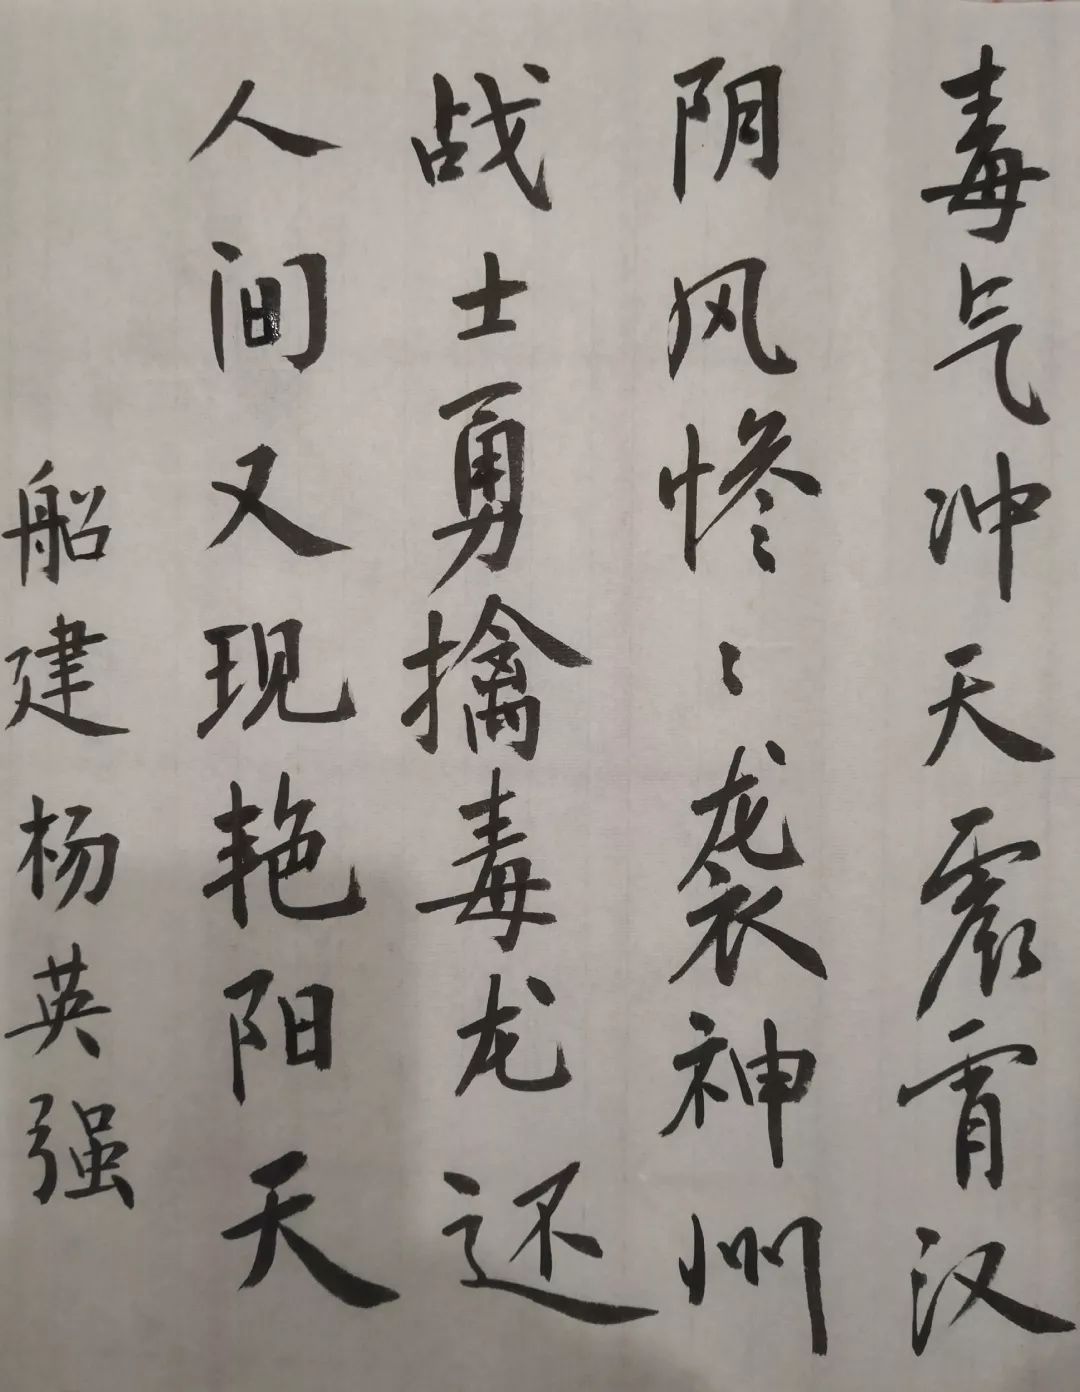 毒气冲天震霄汉
阴风惨〻袭神州
战士勇擒毒龙还
人间又现艳阳天
船建杨英强